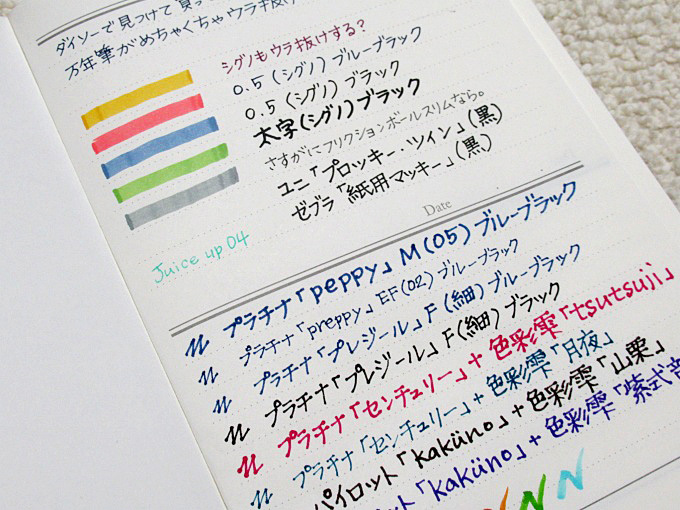 ダイソーで見つけて買っ
万年筆がめちゃくちゃウラ抜け
シグノもウラ抜けする?
0.5(シグノ)ブルーブラック
0.5(シグノ)ブラック
太字(シグノ)ブラック
さすがにフリクションボールスリムなら。
ユニ「プロッキー・ツイン」(黒)
ゼブラ「紙用マッキー」(黒)
Juice up 04
Date
プラチナ「peppy」M(05)ブルーブラック
プラチナ「preppy」EF(02)ブルーブラック
プラチナ「プレジール」F(細)ブルーブラック
プラチナ「プレジール」F(細)ブラック
プラチナ「センチュリー」+色彩雫「tsutsuji」
プラチナ「センチュリー」+色彩雫「月夜」
パイロット「kaküno」+色彩雫「山栗」
ット「kaküno」+色彩雫「紫式